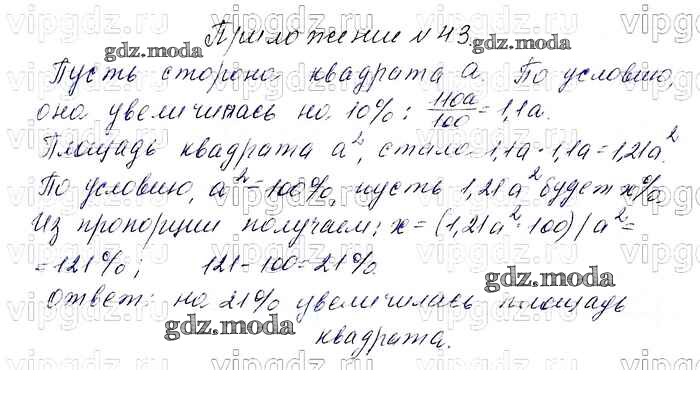 Приложение №43.
Пусть сторона квадрата a. По условию,
она увеличилась на 10%: 110a/100 = 1,1a.
Площадь квадрата a², стало 1,1a·1,1a=1,21a².
По условию, a²=100%, пусть 1,21a² будет x%
Из пропорции получаем: x=(1,21a²·100)/a²=
=121%; 121-100=21%
Ответ: на 21% увеличилась площадь
квадрата.
gdz.moda
gdz.moda
gdz.moda
gdz.moda
vipgdz.ru